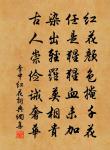 红花颜色掩千花
任是猩猩血未加
染出轻罗莫相贵
古人崇俭诫奢华
李中红花